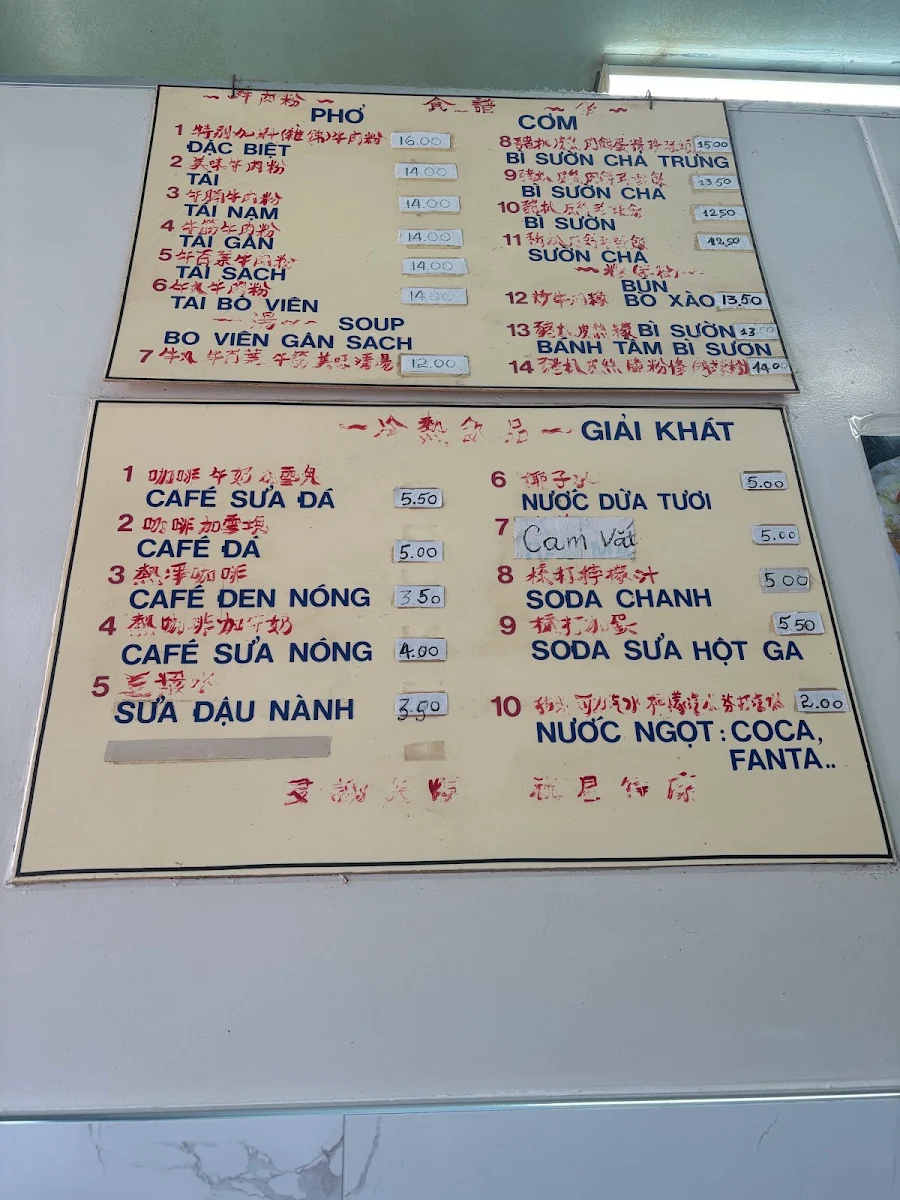 牛肉粉
PHỞ
1 特別加料(雜錦)牛肉粉 16.00
ĐẶC BIỆT
2 美味牛肉粉 14.00
TÁI
3 牛腩牛肉粉 14.00
TÁI NẠM
4 牛筋牛肉粉 14.00
TÁI GÂN
5 牛百葉牛肉粉 14.00
TÁI SACH
6 牛丸牛肉粉
TAI BÒ VIÊN
湯
SOUP
BO VIÊN GÂN SACH
7 牛丸 牛百葉 牛筋 美味清湯 12.00
食譜
CƠM
8 15.00
BÌ SƯỜN CHẢ TRƯNG
9 13.50
BÌ SƯỜN CHẢ
10 12.50
BÌ SƯỜN
11 12.50
SƯỜN CHẢ
BÚN
12 炒牛肉檬 BÒ XÀO 13.50
13 BÌ SƯỜN
BÁNH TẦM BÌ SƯƠN
14 14.00
冷熱飲品
GIẢI KHÁT
1 咖啡牛奶 5.50
CAFÉ SỮA ĐÁ
2 咖啡加雪塊 5.00
CAFÉ ĐÁ
3 熱淨咖啡 3.50
CAFÉ ĐEN NÓNG
4 熱咖啡加牛奶 4.00
CAFÉ SỮA NÓNG
5 3.50
SỮA ĐẬU NÀNH
6 椰子水 5.00
NƯỚC DỪA TƯƠI
7 Cam Vắt 5.00
8 梳打檸檬汁 5.00
SODA CHANH
9 5.50
SODA SỮA HỘT GA
10 2.00
NƯỚC NGỌT : COCA,
FANTA..